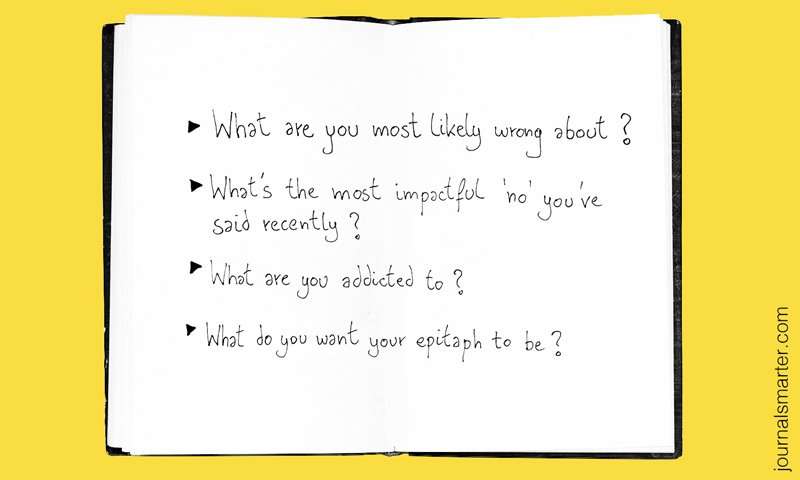 ► What are you most likely wrong about?
► What's the most impactful 'no' you've
said recently?
► What are you addicted to?
► What do you want your epitaph to be?
journalsmarter.com